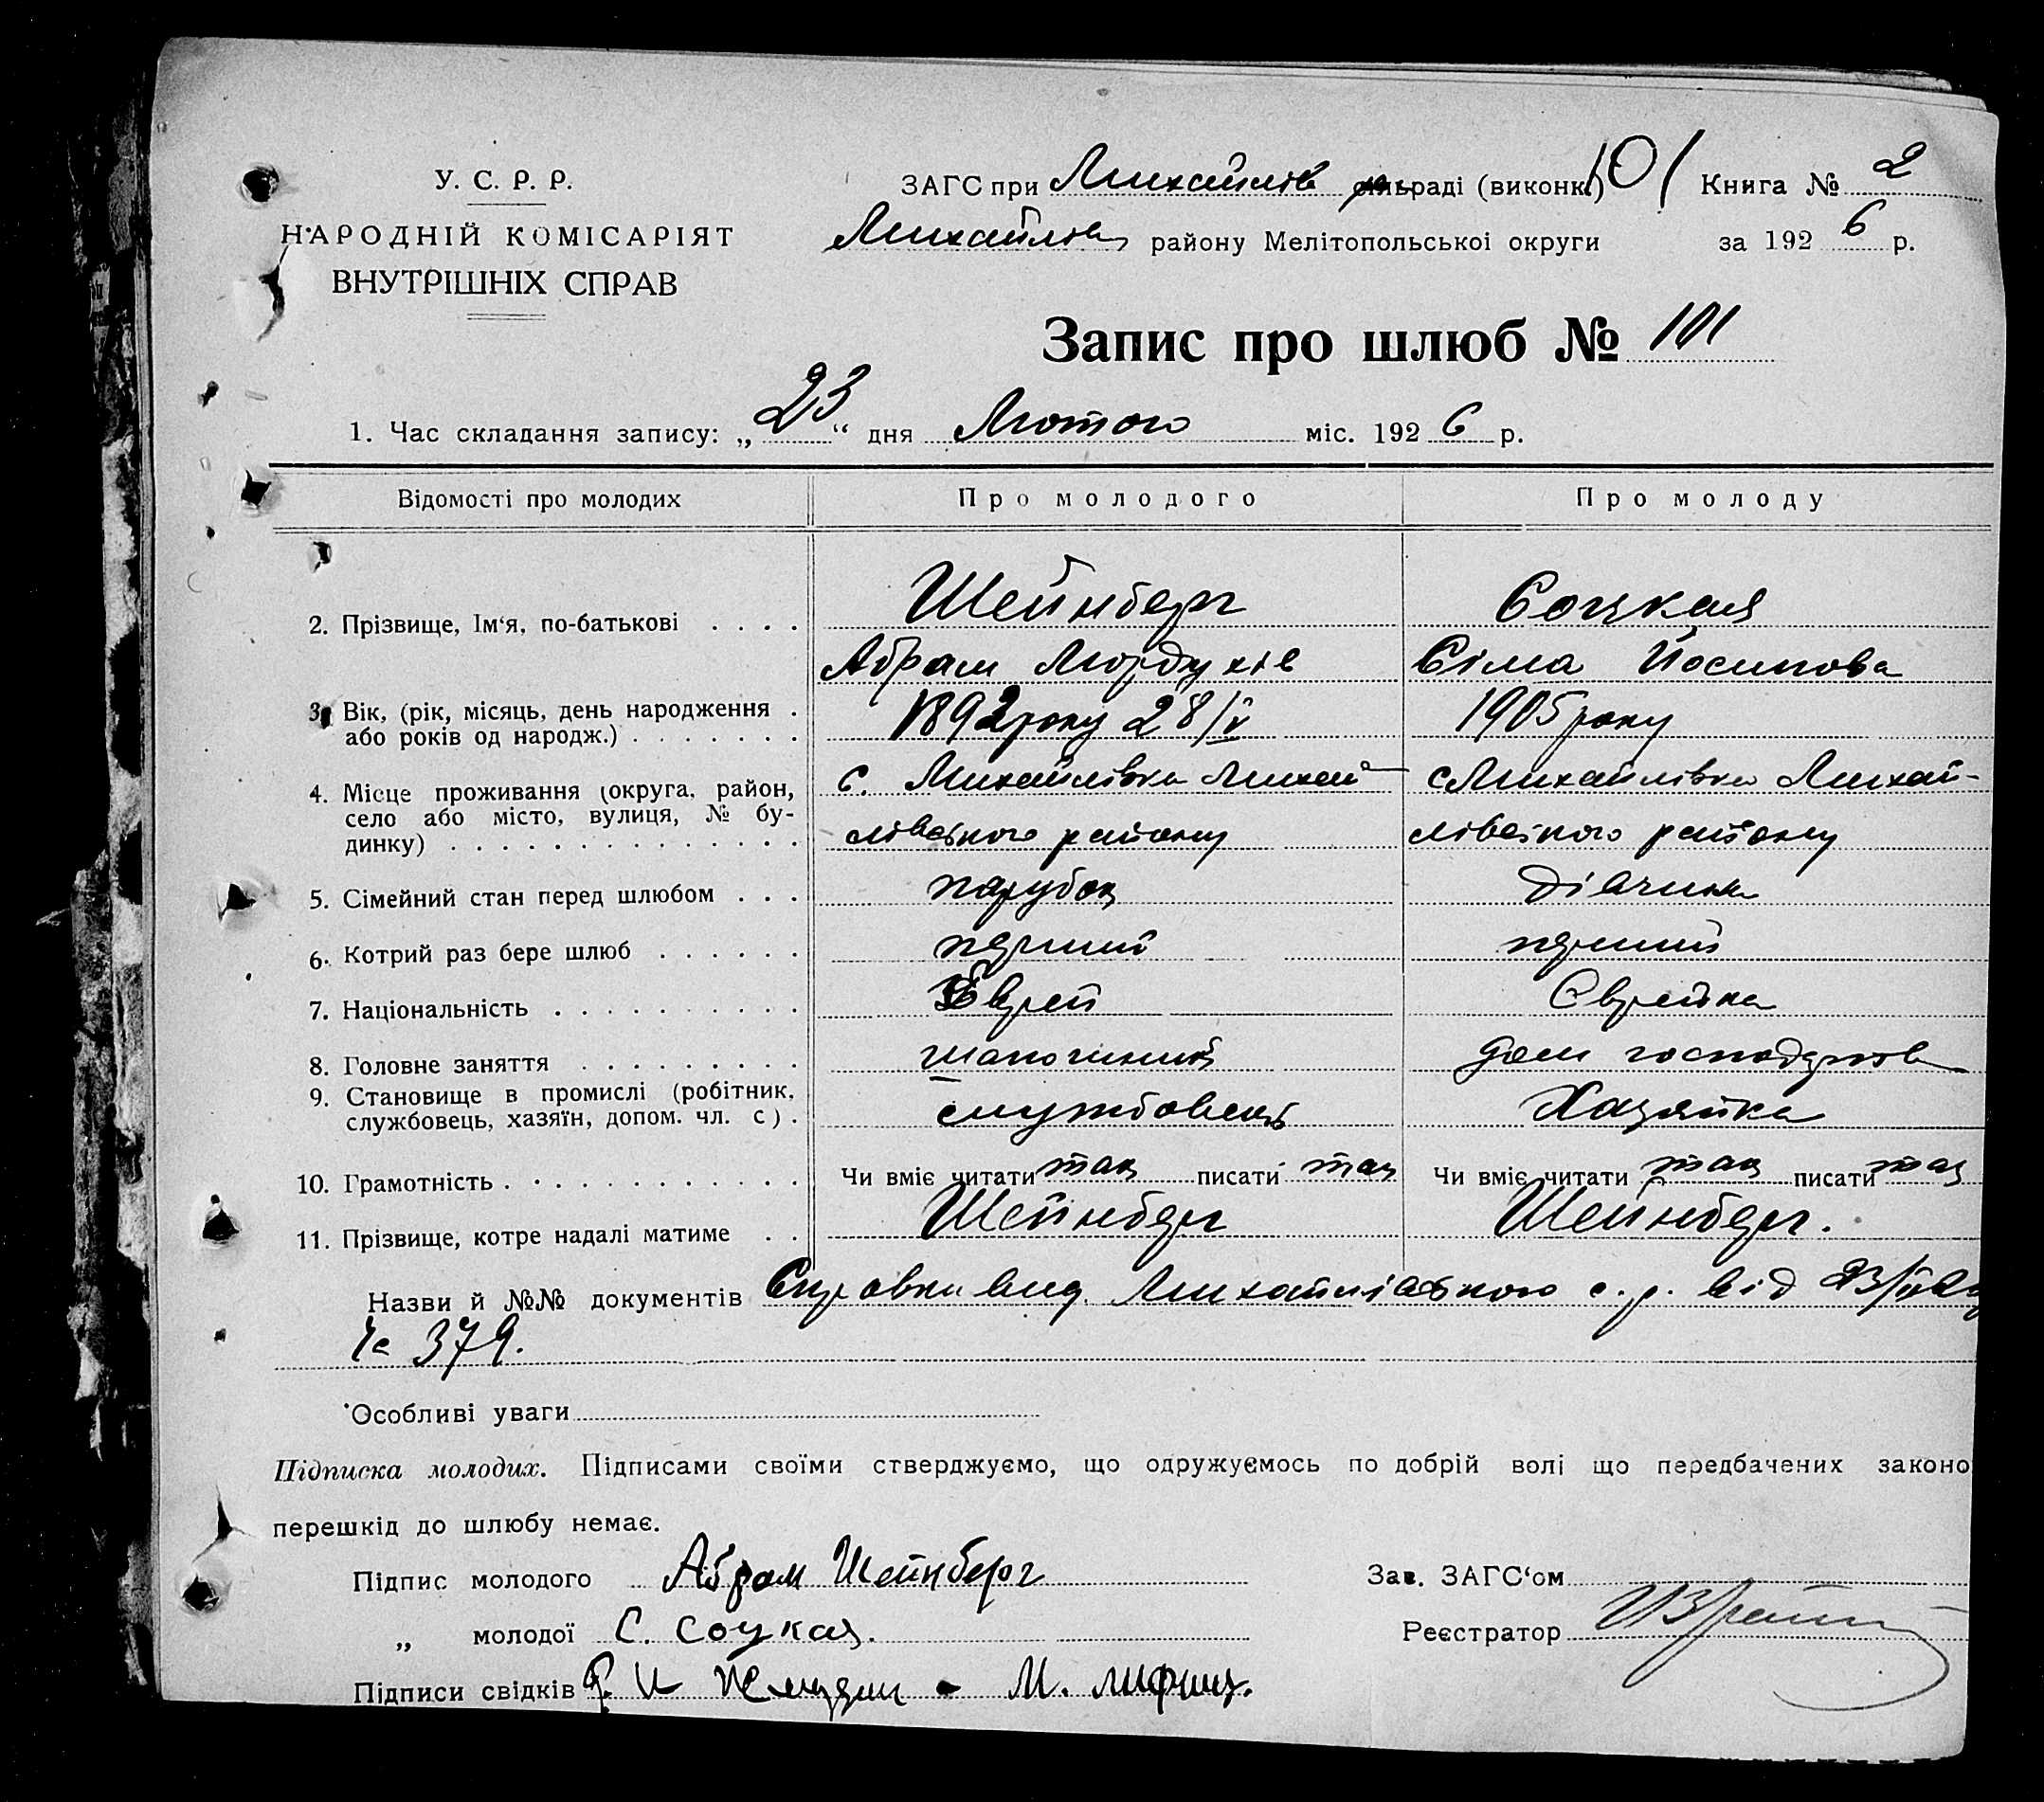 У. С. Р. Р.
НАРОДНІЙ КОМІСАРІЯТ
ВНУТРІШНІХ СПРАВ
ЗАГС при Михайлів раді (виконк.) 101 Книга № 2
Михайлів району Мелітопольськоі округи за 1926 р.
Запис про шлюб № 101
1. Час складання запису: „23“ дня Лютого міс. 1926 р.
Відомості про молодих Про молодого Про молоду
2. Прізвище, Ім‘я, по-батькові . . . . Шейнберг Соцкая
Абрам Мордухів Сіма Йосипова
3. Вік, (рік, місяць, день народження . 1892 року 28/V 1905 року
або років од народж.) . . . . . . .
4. Місце проживання (округа, район, с. Михайлівка Михай с Михайлівка Михай-
село або місто, вулиця, № бу-
динку) . . . . . . . . . . . . . . лівського району лівського району
5. Сімейний стан перед шлюбом . . . парубок дівчина
6. Котрий раз бере шлюб . . . . . . перший перший
7. Національність . . . . . . . . . . Єврей Єврейка
8. Головне заняття . . . . . . . . . шапошник дом господарство
9. Становище в промислі (робітник,
службовець, хазяїн, допом. чл. с) . службовець Хазяйка
10. Грамотність . . . . . . . . . . . . Чи вміє читати так писати так Чи вміє читати так писати так
11. Прізвище, котре надалі матиме . . Шейнберг Шейнберг.
Назви й №№ документів Справки вид. Михайлівського с.р. від 23/II
№ 379.
Особливі уваги
Підписка молодих. Підписами своїми стверджуємо, що одружуємось по добрій волі що передбачених законо
перешкід до шлюбу немає.
Підпис молодого Абрам Шейнберг Зав. ЗАГС‘ом
„ молодої С. Соцкая. Реєстратор
Підписи свідків М. Лифшиц.